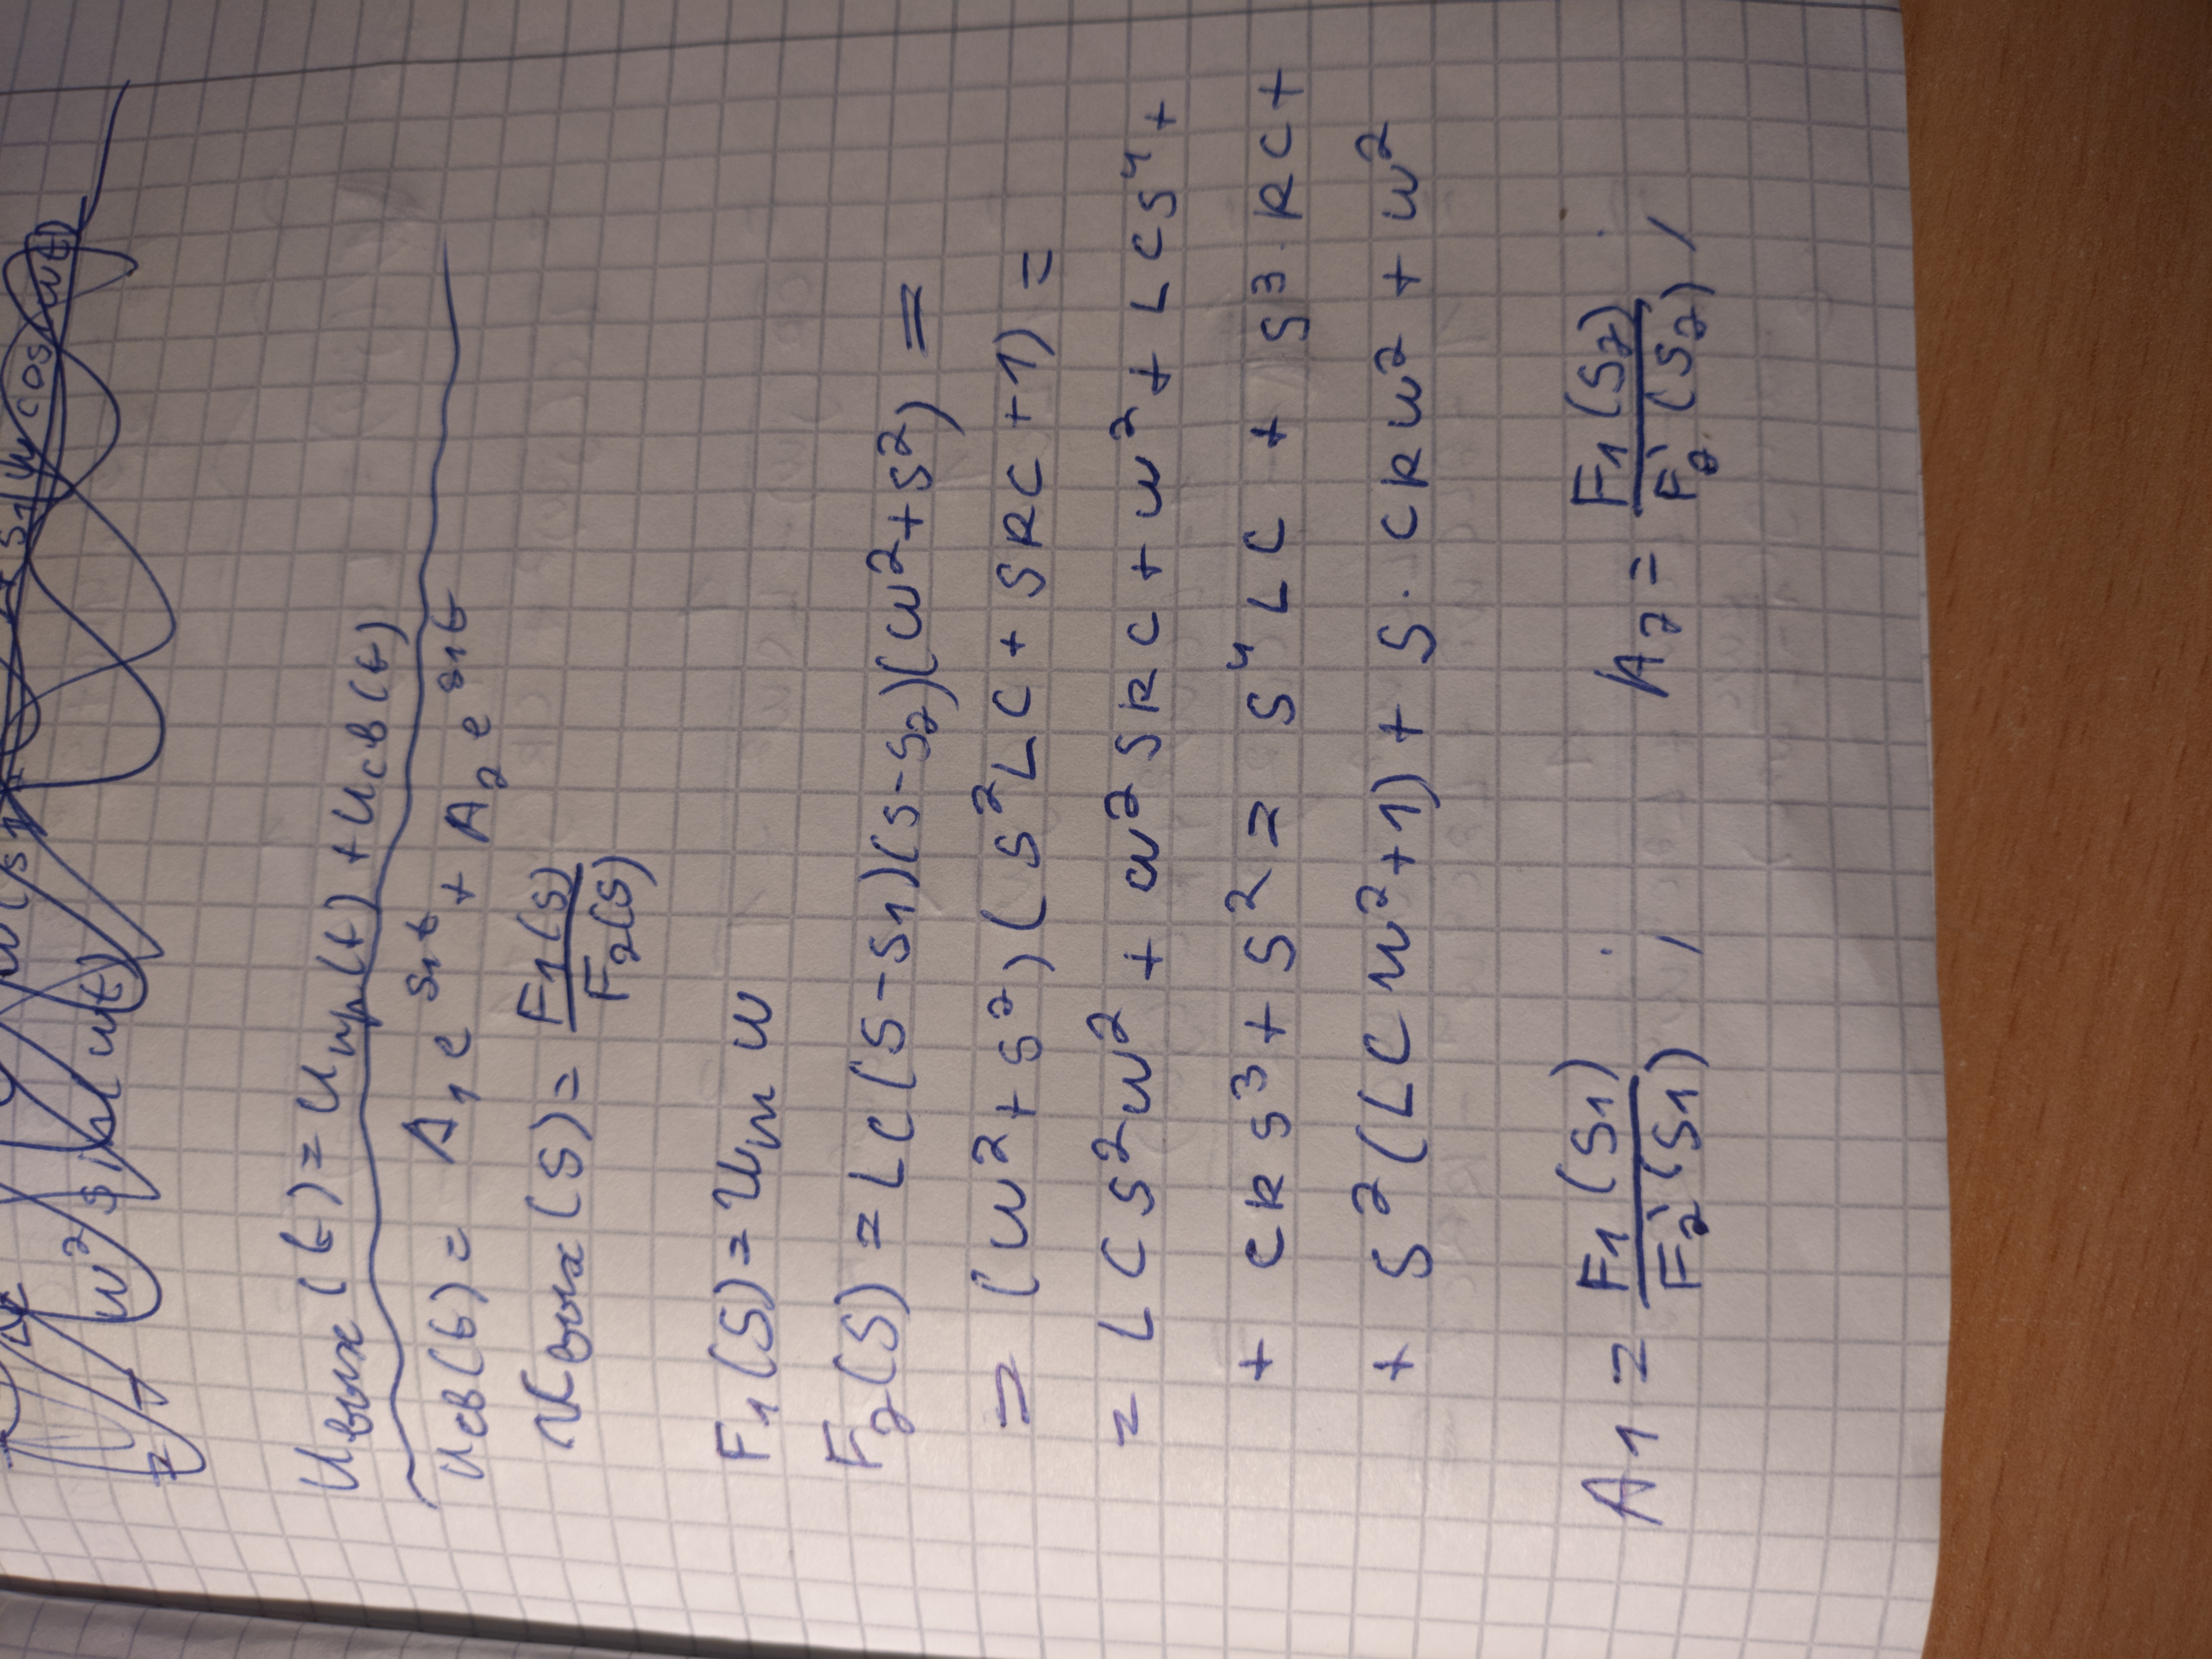 = - ω² sin(ωt)
Uвых(t) = Uпр(t) + Uсв(t)
Uсв(t) = A₁e^(s₁t) + A₂e^(s₁t)
Uвых(S) = F₁(S) / F₂(S)
F₁(S) = Um ω
F₂(S) = LC(S-S₁)(S-S₂)(ω²+S²) =
= (ω²+S²)(S²LC + SRC + 1) =
= LCS²ω² + ω²SRC + ω² + LCS⁴ +
+ CRS³ + S² = S⁴LC + S³·RC +
+ S²(LCω²+1) + S·CRω² + ω²
A₁ = F₁(S₁) / F₂'(S₁) ; A₂ = F₁(S₂) / F₂'(S₂) ;